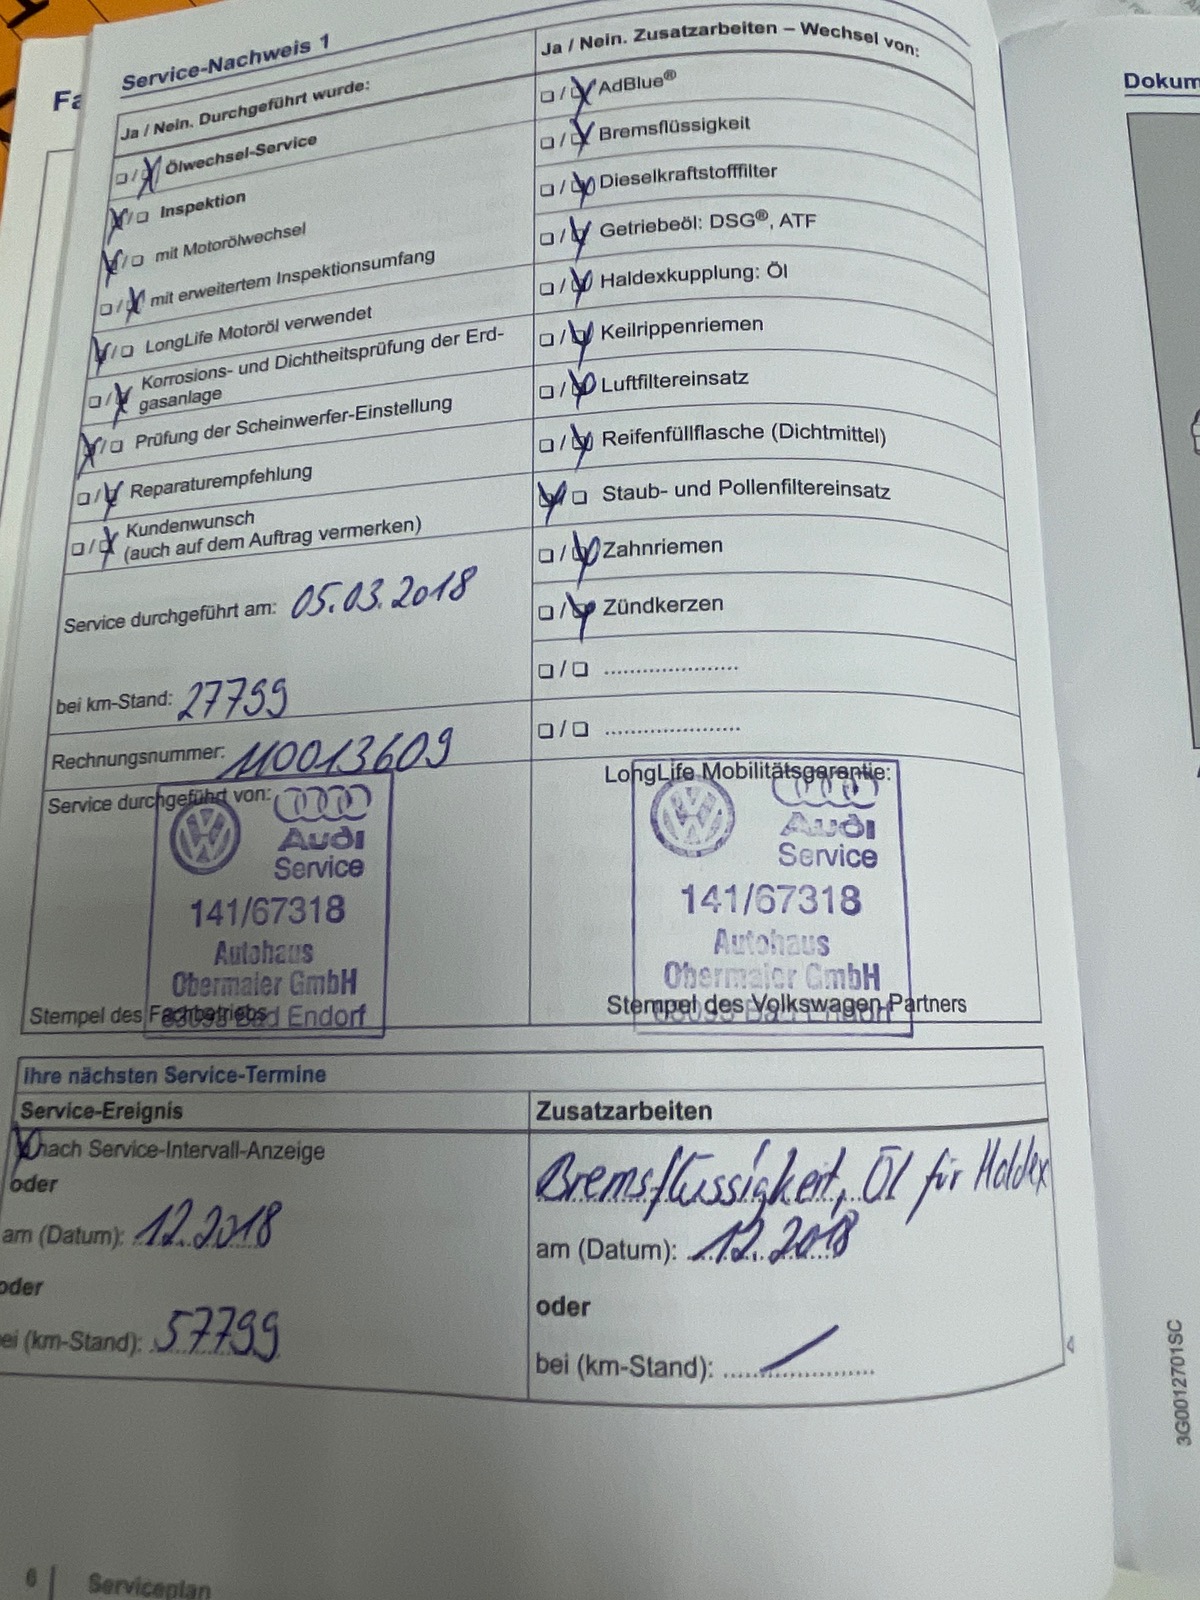 Fa
Service-Nachweis 1
Ja / Nein. Durchgeführt wurde:
❏/❏ Ölwechsel-Service
❏/❏ Inspektion
❏/❏ mit Motorölwechsel
❏/❏ mit erweitertem Inspektionsumfang
❏/❏ LongLife Motoröl verwendet
❏/❏ Korrosions- und Dichtheitsprüfung der Erd-
gasanlage
❏/❏ Prüfung der Scheinwerfer-Einstellung
❏/❏ Reparaturempfehlung
❏/❏ Kundenwunsch
(auch auf dem Auftrag vermerken)
Service durchgeführt am: 05.03.2018
bei km-Stand: 27799
Rechnungsnummer: 110013609
Ja / Nein. Zusatzarbeiten – Wechsel von:
❏/❏ AdBlue®
❏/❏ Bremsflüssigkeit
❏/❏ Dieselkraftstofffilter
❏/❏ Getriebeöl: DSG®, ATF
❏/❏ Haldexkupplung: Öl
❏/❏ Keilrippenriemen
❏/❏ Luftfiltereinsatz
❏/❏ Reifenfüllflasche (Dichtmittel)
❏/❏ Staub- und Pollenfiltereinsatz
❏/❏ Zahnriemen
❏/❏ Zündkerzen
❏/❏ .......................
❏/❏ .......................
Service durchgeführt von:
Audi
Service
141/67318
Autohaus
Obermaier GmbH
Bad Endorf
Stempel des Fachbetriebs
LongLife Mobilitätsgarantie:
Audi
Service
141/67318
Autohaus
Obermaier GmbH
83093 Bad Endorf
Stempel des Volkswagen Partners
Ihre nächsten Service-Termine
Service-Ereignis
nach Service-Intervall-Anzeige
oder
am (Datum): 12.2018
oder
ei (km-Stand): 57799
Zusatzarbeiten
Bremsflüssigkeit, Öl für Haldex
am (Datum): 12.2018
oder
bei (km-Stand): /
6 | Serviceplan
Dokum
3G0012701SC